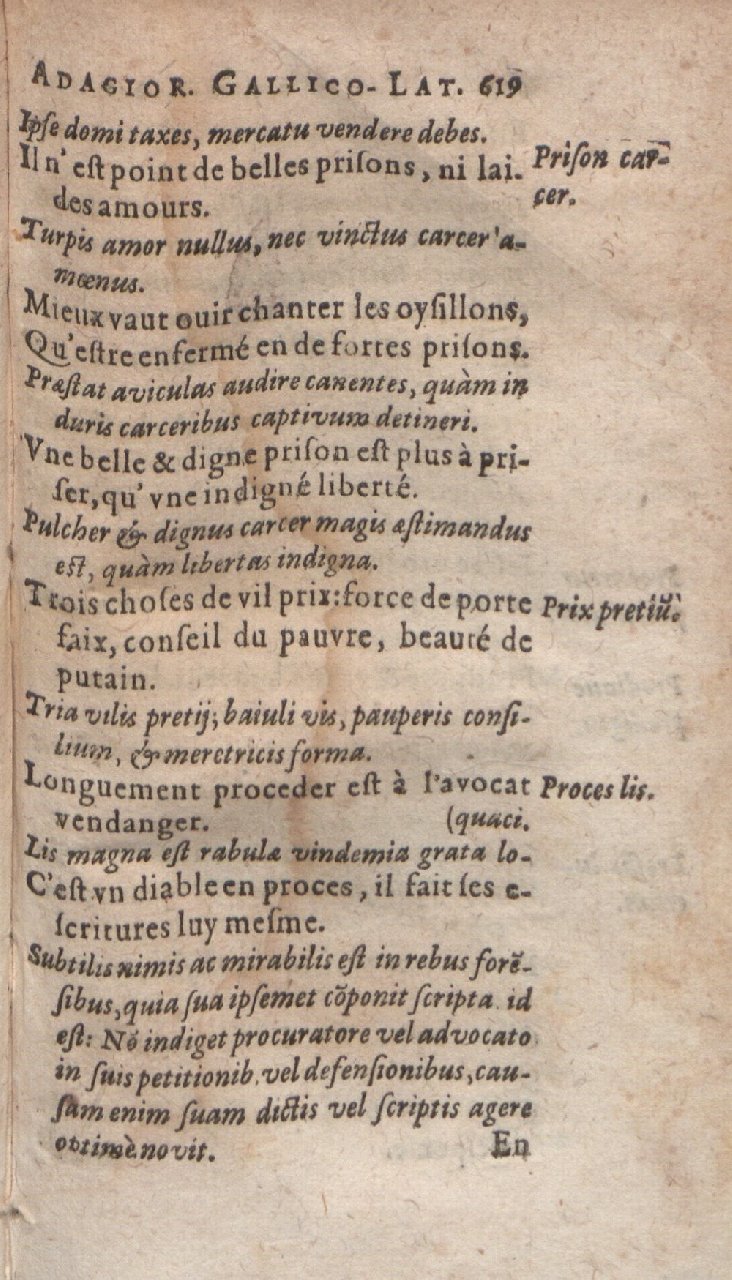 ADAGIOR. GALLICO-LAT. 619
Ipſe domi taxes, mercatu vendere debes.
Il n'eſt point de belles priſons, ni lai-
des amours.
Priſon car-
cer.
Turpis amor nullus, nec vinctus carcer a-
mœnus.
Mieux vaut ouir chanter les oyſillons,
Qu'eſtre enfermé en de fortes priſons.
Præſtat aviculas audire canentes, quàm in
duris carceribus captivum detineri.
Vne belle & digne priſon eſt plus à pri-
ſer, qu'vne indigné liberté.
Pulcher & dignus carcer magis æſtimandus
eſt, quàm libertas indigna.
Trois choſes de vil prix: force de porte
faix, conſeil du pauvre, beauté de
putain.
Prix pretiũ.
Tria vilis pretij; baiuli vis, pauperis conſi-
lium, & meretricis forma.
Longuement proceder eſt à l'avocat
vendanger. (quaci.
Proces lis.
Lis magna eſt rabulæ vindemia grata lo-
C'eſt vn diable en proces, il fait ſes e-
ſcritures luy meſme.
Subtilis nimis ac mirabilis eſt in rebus forẽ-
ſibus, quia ſua ipſemet cõponit ſcripta id
eſt: Nõ indiget procuratore vel advocato
in ſuis petitionib. vel defenſionibus, cau-
ſam enim ſuam dictis vel ſcriptis agere
optimè novit. En